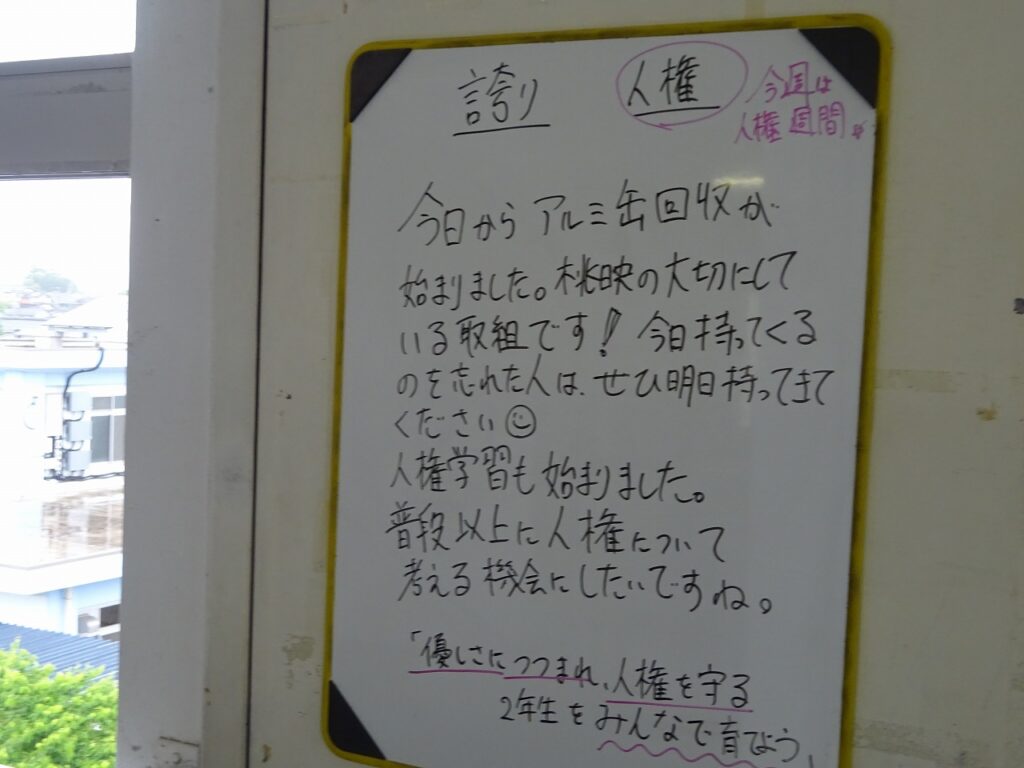 誇り 人権 今週は
人権週間
今日からアルミ缶回収が
始まりました。桃映の大切にして
いる取組です! 今日持ってくる
のを忘れた人は、ぜひ明日持ってきて
ください
人権学習も始まりました。
普段以上に人権について
考える機会にしたいですね。
「優しさにつつまれ、人権を守る
2年生をみんなで育てよう」